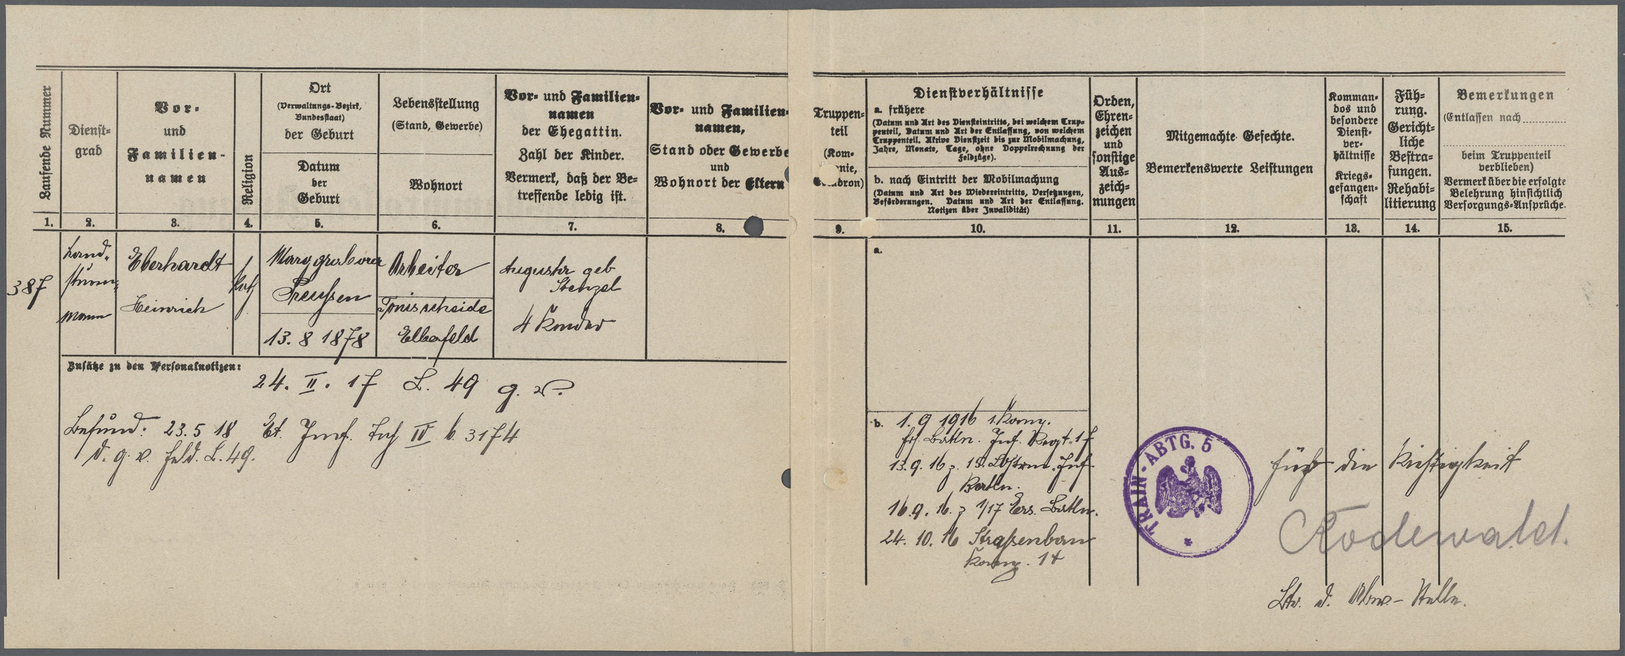 Laufende Nummer
Dienst-
grad
Vor-
und
Familien-
namen
Religion
Ort
(Verwaltungs-Bezirk,
Bundesstaat)
der Geburt
Datum
der
Geburt
Lebensstellung
(Stand, Gewerbe)
Wohnort
Vor- und Familien-
namen
der Ehegattin.
Zahl der Kinder.
Vermerk, daß der Be-
treffende ledig ist.
Vor- und Familien-
namen,
Stand oder Gewerbe
und
Wohnort der Eltern
1. 2. 3. 4. 5. 6. 7. 8.
387
Land-
sturm-
mann
Eberhardt
Heinrich
Kath
Marggrabowa
Preußen
13. 8 1878
Arbeiter
Elberfeld
Auguste geb
Stenzel
4 Kinder
Zusätze zu den Personalnotizen:
24. II. 17 L. 49 g. v.
Befund: 23.5 18 Et. Inf. IV b. 3174
d. g. v. Feld. L. 49.
Truppen-
teil
(Kom-
nie,
dron)
Dienstverhältnisse
a. frühere
(Datum und Art des Diensteintritts, bei welchem Trup-
penteil, Datum und Art der Entlassung, von welchem
Truppenteil. Aktive Dienstzeit bis zur Mobilmachung,
Jahre, Monate, Tage, ohne Doppelrechnung der
Feldzüge).
b. nach Eintritt der Mobilmachung
(Datum und Art des Wiedereintritts, Versetzungen,
Beförderungen. Datum und Art der Entlassung.
Notizen über Invalidität)
Orden,
Ehren-
zeichen
und
sonstige
Aus-
zeich-
nungen
Mitgemachte Gefechte.
Bemerkenswerte Leistungen
Komman-
dos und
besondere
Dienst-
ver-
hältnisse
Kriegs-
gefangen-
schaft
Füh-
rung.
Gericht-
liche
Bestra-
fungen.
Rehabi-
litierung
Bemerkungen
(Entlassen nach
beim Truppenteil
verblieben)
Vermerk über die erfolgte
Belehrung hinsichtlich
Versorgungs-Ansprüche.
9. 10. 11. 12. 13. 14. 15.
a.
b. 1. 9 1916 1. Komp.
Batln. Inf. Regt. 17
13. 9. 16 z. Inf.
Batln.
16. 9. 16. z 1/17 Ers. Batln.
24. 10. 16 Straßenbau
Komp. 14
TRAIN-ABTG. 5
Für die Richtigkeit
Rodewald.
Ltn. d.